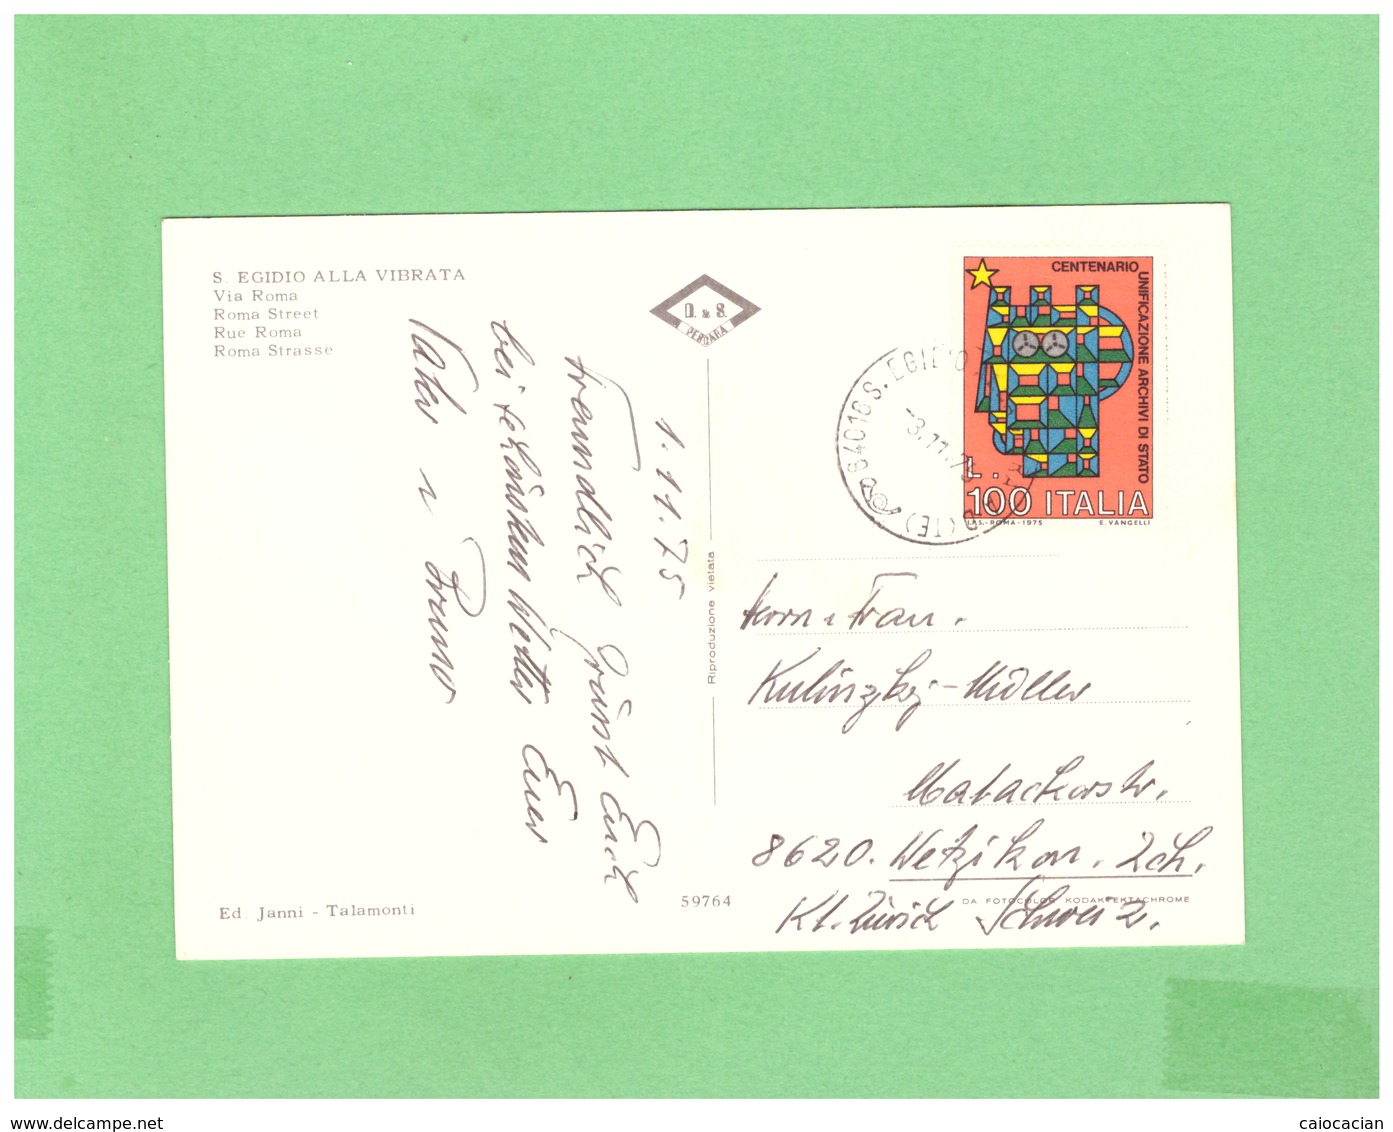 S. EGIDIO ALLA VIBRATA
Via Roma
Roma Street
Rue Roma
Roma Strasse
D. & S.
PESCARA
CENTENARIO
UNIFICAZIONE ARCHIVI DI STATO
L. 100 ITALIA
I.P.S.-ROMA-1975 E. VANGELLI
64010 S. EGIDIO
(TE)
1.11.75
freundlich grüsst Euch
bei schönstem Wetter Euer
Vater u Bruno
Riproduzione vietata
Herrn u Frau.
Kulinszky-Müller
8620. Wetzikon. Zch.
Kt. Zürich Schweiz.
Ed. Janni - Talamonti
59764
DA FOTOCOLOR KODAK EKTACHROME
www.delcampe.net
caiocacian